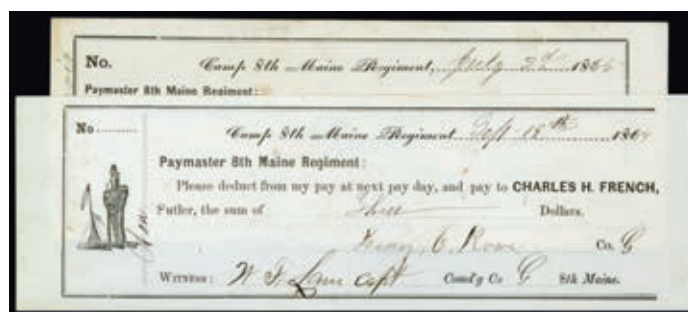 No. Camp 8th Maine Regiment, July 2d 1865
Paymaster 8th Maine Regiment:
No. Camp 8th Maine Regiment Sept 18th 1864
Paymaster 8th Maine Regiment:
Please deduct from my pay at next pay day, and pay to CHARLES H. FRENCH,
Sutler, the sum of Three Dollars.
Henry C. Rowe Co. G
Witness: W F Capt Comd'g Co G 8th Maine.